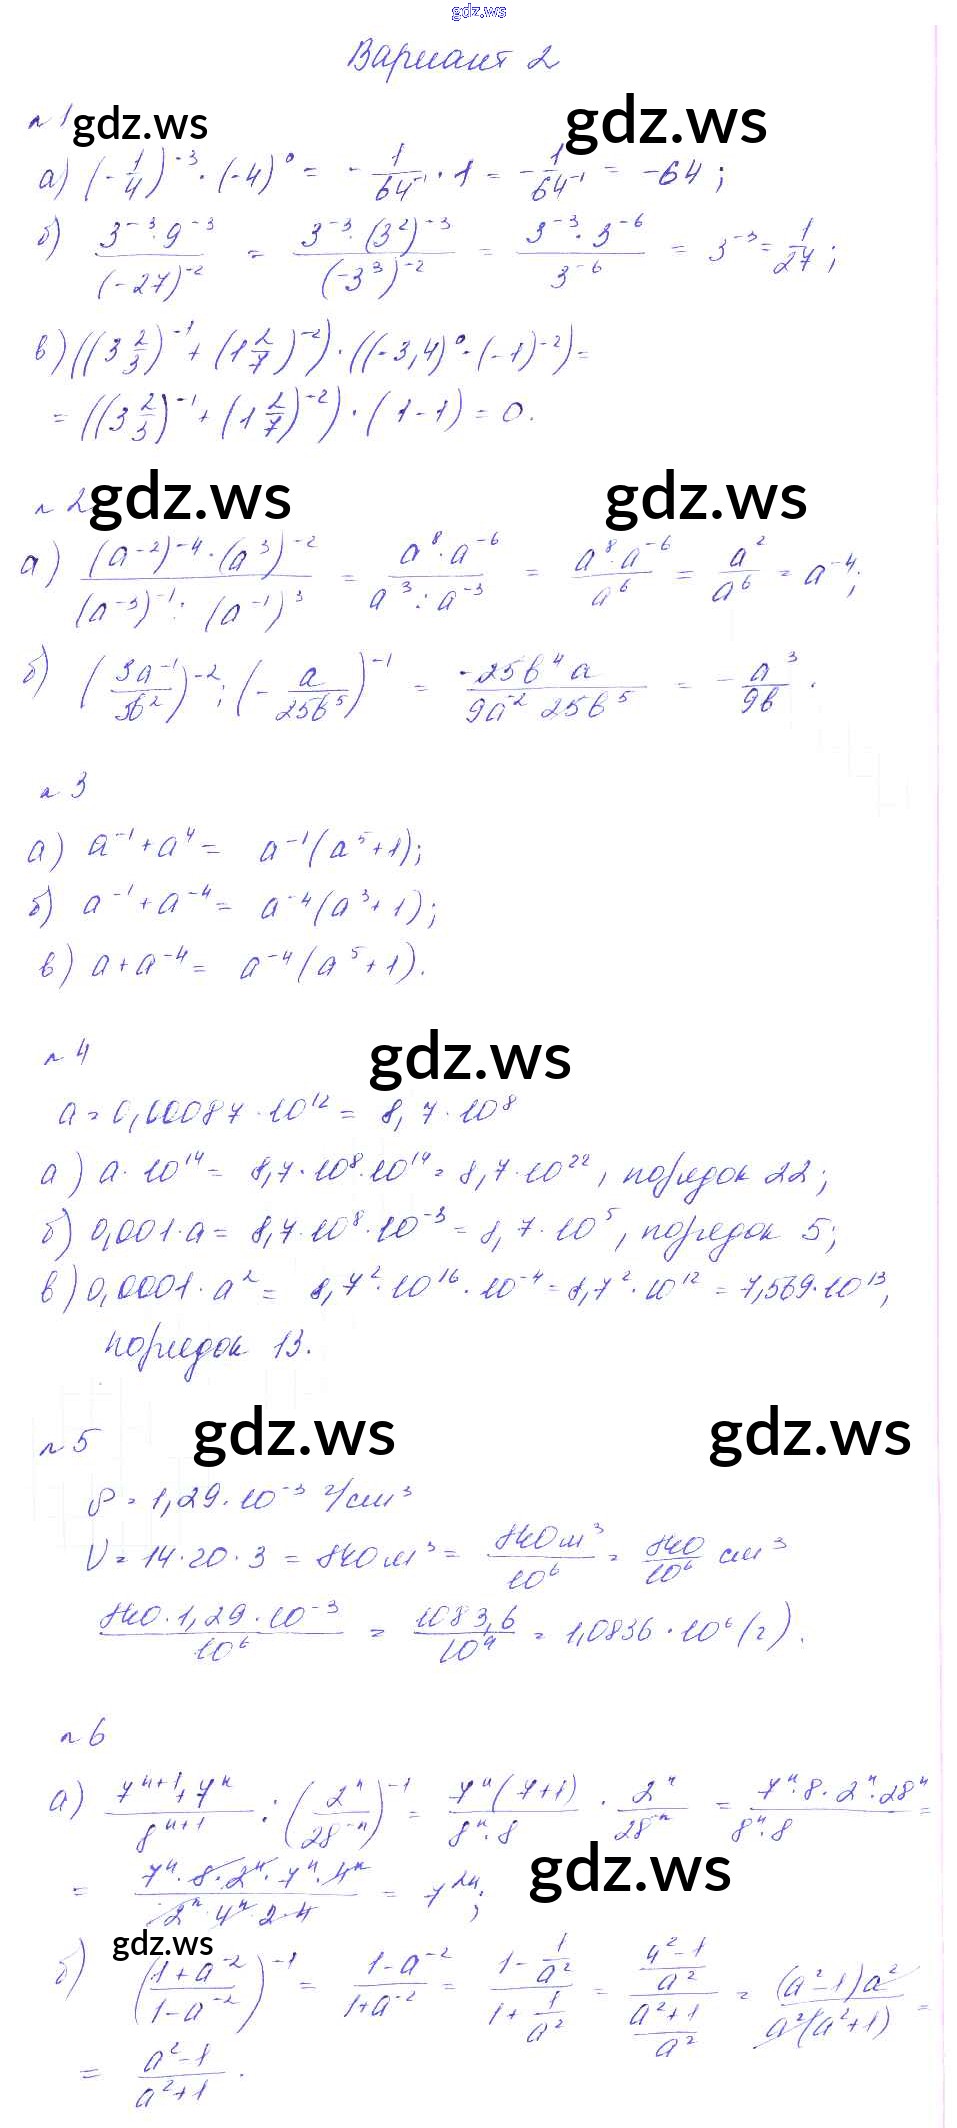 gdz.ws
Вариант 2
n 1 gdz.ws gdz.ws
а) (-1/4)^-3 · (-4)^0 = -1/64^-1 · 1 = -1/64^-1 = -64;
б) 3^-3 · 9^-3/(-27)^-2 = 3^-3 · (3^2)^-3/(-3^3)^-2 = 3^-3 · 3^-6/3^-6 = 3^-3 = 1/27;
в) ((3 2/3)^-1 + (1 2/7)^-2) · ((-3,4)^0 - (-1)^-2) =
= ((3 2/3)^-1 + (1 2/7)^-2) · (1-1) = 0.
n 2 gdz.ws gdz.ws
а) (a^-2)^-4 · (a^3)^-2/(a^-3)^-1 : (a^-1)^3 = a^8 · a^-6/a^3 : a^-3 = a^8 · a^-6/a^6 = a^2/a^6 = a^-4;
б) (3a^-1/5b^2)^-2 : (-a/25b^5)^-1 = -25b^4 a/9a^-2 25b^5 = -a^3/9b.
n 3
а) a^-1 + a^4 = a^-1(a^5+1);
б) a^-1 + a^-4 = a^-4(a^3+1);
в) a + a^-4 = a^-4(a^5+1).
n 4 gdz.ws
a = 0,00087 · 10^12 = 8,7 · 10^8
а) a · 10^14 = 8,7 · 10^8 · 10^14 = 8,7 · 10^22, порядок 22;
б) 0,001 · a = 8,7 · 10^8 · 10^-3 = 8,7 · 10^5, порядок 5;
в) 0,0001 · a^2 = 8,7^2 · 10^16 · 10^-4 = 8,7^2 · 10^12 = 7,569 · 10^13,
порядок 13.
n 5 gdz.ws gdz.ws
ρ = 1,29 · 10^-3 г/см^3
V = 14 · 20 · 3 = 840 м^3 = 840 м^3/10^6 = 840/10^6 см^3
840 · 1,29 · 10^-3/10^6 = 1083,6/10^9 = 1,0836 · 10^6 (г).
n 6
а) 7^n+1 + 7^n/8^n+1 : (2^n/28^-n)^-1 = 7^n(7+1)/8^n · 8 · 2^n/28^-n = 7^n · 8 · 2^n · 28^n/8^n · 8 =
= 7^n · 8 · 2^n · 7^n · 4^n/2^n · 4^n · 2 · 4 = 7^2n; gdz.ws
б) gdz.ws (1+a^-2/1-a^-2)^-1 = 1-a^-2/1+a^-2 = 1-1/a^2/1+1/a^2 = 4^2-1/a^2/a^2+1/a^2 = (a^2-1)a^2/a^2(a^2+1) =
= a^2-1/a^2+1.